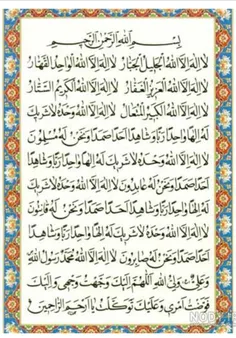 بِسْمِ اللهِ الرَّحْمٰنِ الرَّحِيْمِ
لَا اِلٰهَ اِلَّا اللهُ الْجَلِيْلُ الْجَبَّارُ لَا اِلٰهَ اِلَّا اللهُ الْوَاحِدُ الْقَهَّارُ
لَا اِلٰهَ اِلَّا اللهُ الْعَزِيْزُ الْغَفَّارُ لَا اِلٰهَ اِلَّا اللهُ الْكَرِيْمُ السَّتَّارُ
لَا اِلٰهَ اِلَّا اللهُ الْكَبِيْرُ الْمُتَعَالُ لَا اِلٰهَ اِلَّا اللهُ وَحْدَهُ لَا شَرِيْكَ
لَهُ اِلٰهًا وَاحِدًا رَبًّا وَشَاهِدًا اَحَدًا صَمَدًا وَنَحْنُ لَهُ مُسْلِمُوْنَ
لَا اِلٰهَ اِلَّا اللهُ وَحْدَهُ لَا شَرِيْكَ لَهُ اِلٰهًا وَاحِدًا رَبًّا وَشَاهِدًا
اَحَدًا صَمَدًا وَنَحْنُ لَهُ عَابِدُوْنَ لَا اِلٰهَ اِلَّا اللهُ وَحْدَهُ لَا شَرِيْكَ
لَهُ اِلٰهًا وَاحِدًا رَبًّا وَشَاهِدًا اَحَدًا صَمَدًا وَنَحْنُ لَهُ قَانِتُوْنَ
لَا اِلٰهَ اِلَّا اللهُ وَحْدَهُ لَا شَرِيْكَ لَهُ اِلٰهًا وَاحِدًا رَبًّا وَشَاهِدًا
اَحَدًا صَمَدًا وَنَحْنُ لَهُ صَابِرُوْنَ لَا اِلٰهَ اِلَّا اللهُ مُحَمَّدٌ رَسُوْلُ اللهِ
وَعَلِيٌّ وَلِيُّ اللهِ اَللّٰهُمَّ اِلَيْكَ وَجَّهْتُ وَجْهِيْ وَاِلَيْكَ
فَوَّضْتُ اَمْرِيْ وَعَلَيْكَ تَوَكَّلْتُ يَا اَرْحَمَ الرَّاحِمِيْنَ